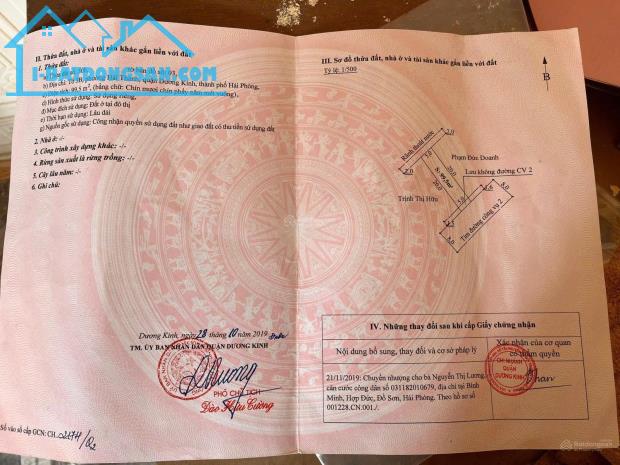 I-BATDONGSAN.COM
II. Thửa đất, nhà ở và tài sản khác gắn liền với đất
1. Thửa đất:
quận Dương Kinh, thành phố Hải Phòng,
c) Diện tích: 99,5 m², (bằng chữ: Chín mươi chín phẩy năm mét vuông),
d) Hình thức sử dụng: Sử dụng riêng,
đ) Mục đích sử dụng: Đất ở tại đô thị
e) Thời hạn sử dụng: Lâu dài
g) Nguồn gốc sử dụng: Công nhận quyền sử dụng đất như giao đất có thu tiền sử dụng đất
2. Nhà ở: -/-
3. Công trình xây dựng khác: -/-
4. Rừng sản xuất là rừng trồng: -/-
5. Cây lâu năm: -/-
6. Ghi chú:
Dương Kinh, ngày 28 tháng 10 năm 2019
TM. ỦY BAN NHÂN DÂN QUẬN DƯƠNG KINH
PHÓ CHỦ TỊCH
Đào Hữu Cường
Số vào sổ cấp GCN: CH
III. Sơ đồ thửa đất, nhà ở và tài sản khác gắn liền với đất
Tỷ lệ: 1/500
B
Rãnh thoát nước
2,0
2,0
5,0
Phạm Đức Doanh
20,0
S: 99,5m²
20,0
Lưu không đường CV 2
Trịnh Thị Hữu
5,0
8,0
Tim đường công vụ 2
8,0
IV. Những thay đổi sau khi cấp Giấy chứng nhận
Nội dung bổ sung, thay đổi và cơ sở pháp lý
Xác nhận của cơ quan
có thẩm quyền
21/11/2019: Chuyển nhượng cho bà Nguyễn Thị Lương,
căn cước công dân số 031182010679, địa chỉ tại Bình
Minh, Hợp Đức, Đồ Sơn, Hải Phòng. Theo hồ sơ số
001228.CN.001./.
CHI NHÁNH
QUẬN
DƯƠNG KINH
Batdongsan